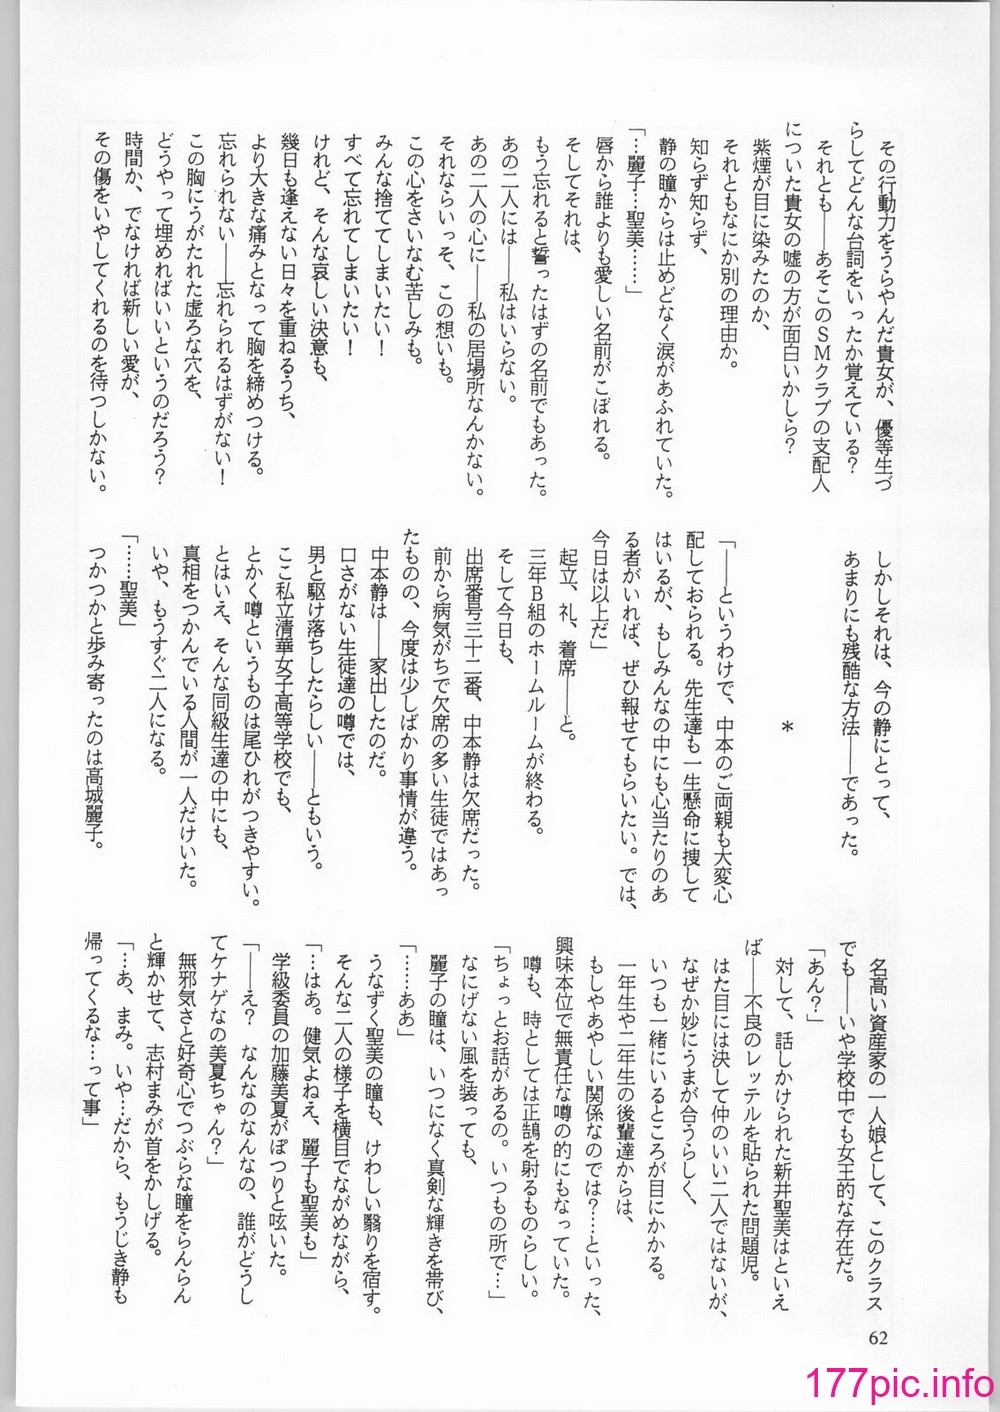 その行動力をうらやんだ貴女が、優等生づ
らしてどんな台詞をいったか覚えている？
それとも――あそこのＳＭクラブの支配人
についた貴女の嘘の方が面白いかしら？
紫煙が目に染みたのか、
それともなにか別の理由か。
知らず知らず、
静の瞳からは止めどなく涙があふれていた。
「…麗子…聖美……」
唇から誰よりも愛しい名前がこぼれる。
そしてそれは、
もう忘れると誓ったはずの名前でもあった。
あの二人には――私はいらない。
あの二人の心に――私の居場所なんかない。
それならいっそ、この想いも。
この心をさいなむ苦しみも。
みんな捨ててしまいたい！
すべて忘れてしまいたい！
けれど、そんな哀しい決意も、
幾日も逢えない日々を重ねるうち、
より大きな痛みとなって胸を締めつける。
忘れられない――忘れられるはずがない！
この胸にうがたれた虚ろな穴を、
どうやって埋めればいいというのだろう？
時間か、でなければ新しい愛が、
その傷をいやしてくれるのを待つしかない。
しかしそれは、今の静にとって、
あまりにも残酷な方法――であった。
＊
「――というわけで、中本のご両親も大変心
配しておられる。先生達も一生懸命に捜して
はいるが、もしみんなの中にも心当たりのあ
る者がいれば、ぜひ報せてもらいたい。では、
今日は以上だ」
起立、礼、着席――と。
三年Ｂ組のホームルームが終わる。
そして今日も、
出席番号三十二番、中本静は欠席だった。
前から病気がちで欠席の多い生徒ではあっ
たものの、今度は少しばかり事情が違う。
中本静は――家出したのだ。
口さがない生徒達の噂では、
男と駆け落ちしたらしい――ともいう。
ここ私立清華女子高等学校でも、
とかく噂というものは尾ひれがつきやすい。
とはいえ、そんな同級生達の中にも、
真相をつかんでいる人間が一人だけいた。
いや、もうすぐ二人になる。
「……聖美」
つかつかと歩み寄ったのは高城麗子。
名高い資産家の一人娘として、このクラス
でも――いや学校中でも女王的な存在だ。
「あん？」
対して、話しかけられた新井聖美はといえ
ば――不良のレッテルを貼られた問題児。
はた目には決して仲のいい二人ではないが、
なぜか妙にうまが合うらしく、
いつも一緒にいるところが目にかかる。
一年生や二年生の後輩達からは、
もしやあやしい関係なのでは？…といった、
興味本位で無責任な噂の的にもなっていた。
噂も、時としては正鵠を射るものらしい。
「ちょっとお話があるの。いつもの所で…」
なにげない風を装っても、
麗子の瞳は、いつになく真剣な輝きを帯び、
「……ああ」
うなずく聖美の瞳も、けわしい翳りを宿す。
そんな二人の様子を横目でながめながら、
「…はあ。健気よねえ、麗子も聖美も」
学級委員の加藤美夏がぽつりと呟いた。
「――え？　なんなのなんなの、誰がどうし
てケナゲなの美夏ちゃん？」
無邪気さと好奇心でつぶらな瞳をらんらん
と輝かせて、志村まみが首をかしげる。
「…あ、まみ。いや…だから、もうじき静も
帰ってくるな…って事」
62
177pic.info